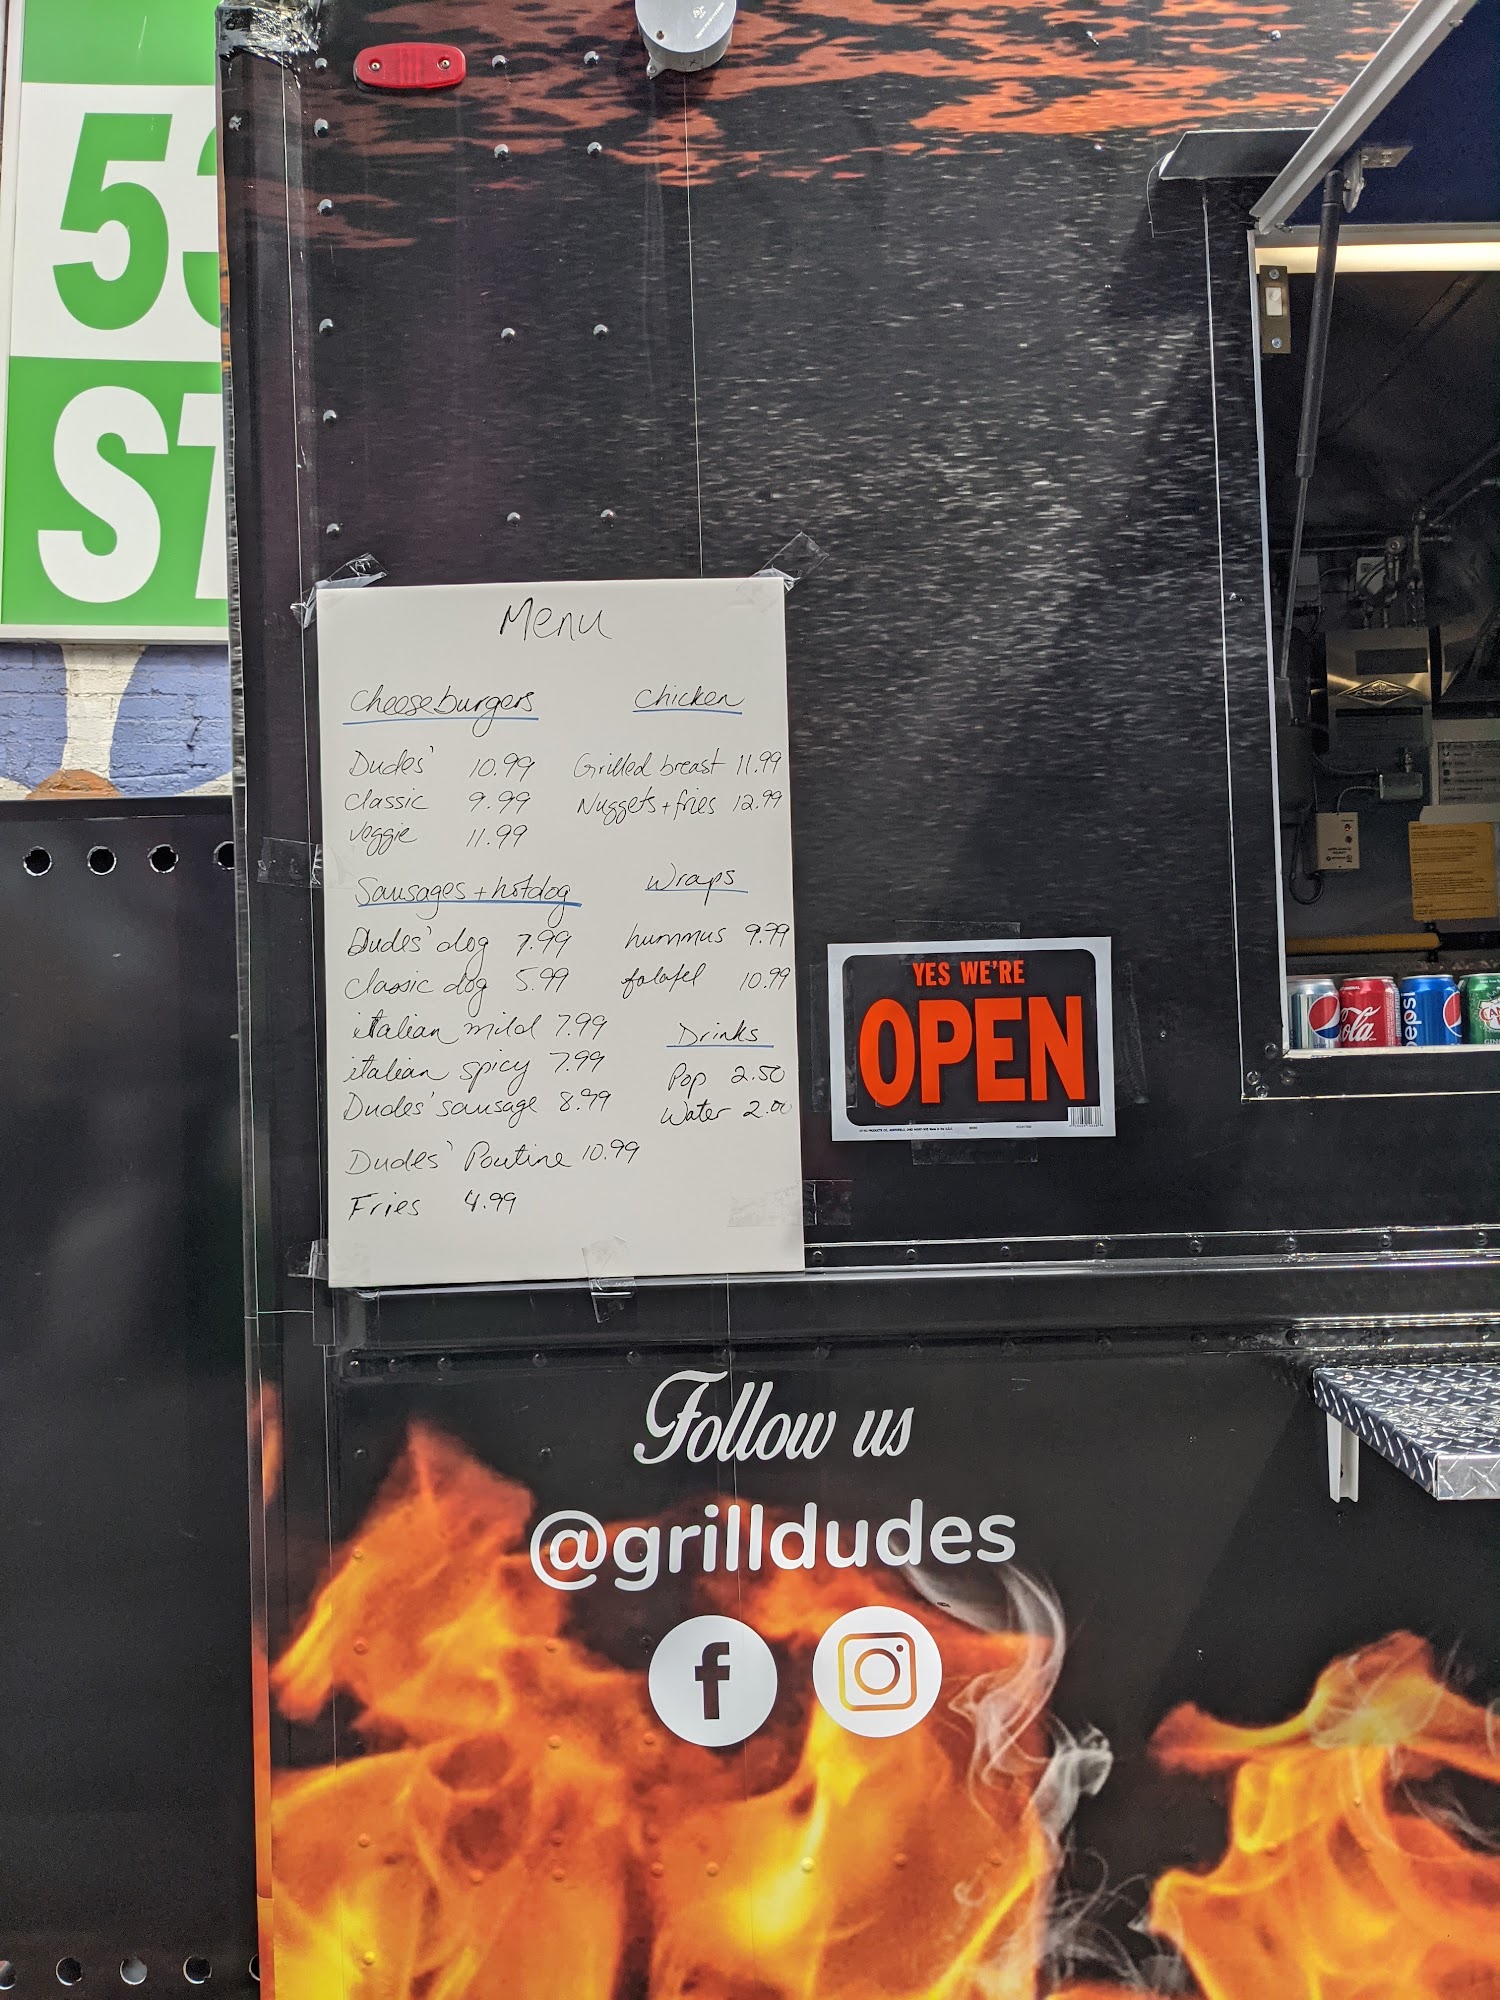 53
ST
Menu
Cheeseburgers
Dudes' 10.99
Classic 9.99
Veggie 11.99
Sausages + hotdog
Dudes' dog 7.99
classic dog 5.99
italian mild 7.99
italian spicy 7.99
Dudes' sausage 8.99
Dudes' Poutine 10.99
Fries 4.99
Chicken
Grilled breast 11.99
Nuggets + fries 12.99
Wraps
hummus 9.99
falafel 10.99
Drinks
Pop 2.50
Water 2.00
YES WE'RE
OPEN
Cola
epsi
Follow us
@grilldudes
f